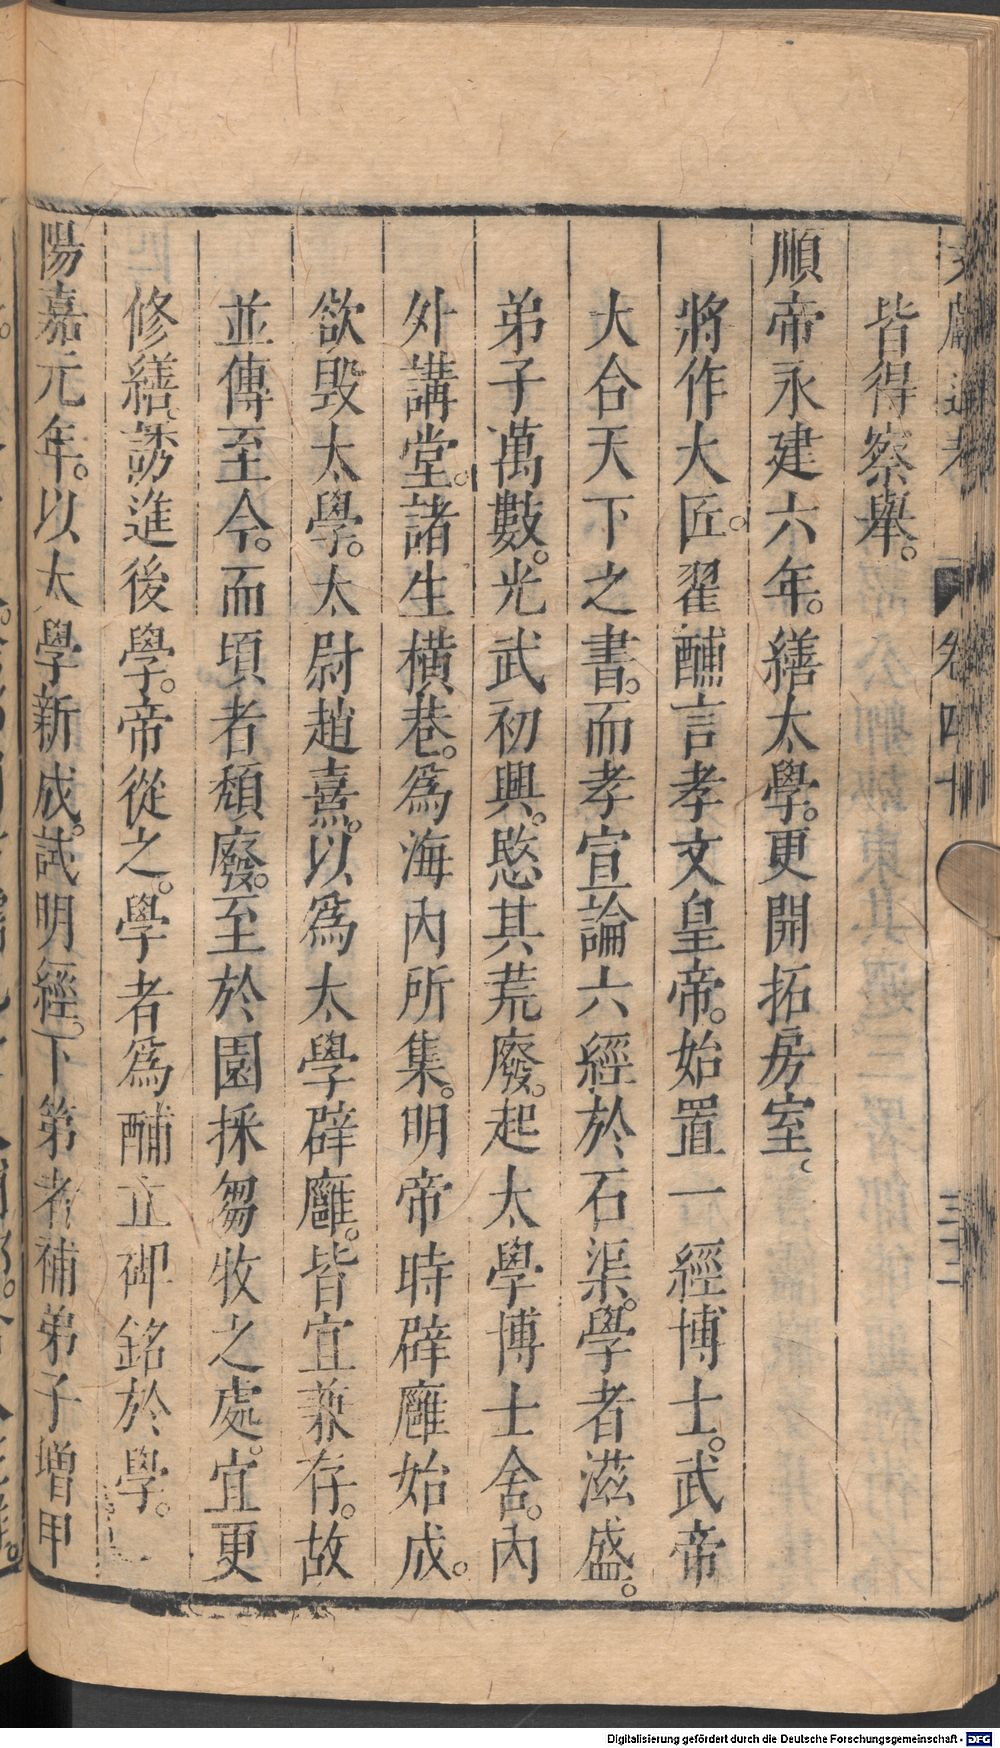 文獻通考 卷四十 三三
皆得察舉。
順帝永建六年。繕太學。更開拓房室。
將作大匠。翟酺言孝文皇帝。始置一經博士。武帝
大合天下之書。而孝宣論六經於石渠。學者滋盛。
弟子萬數。光武初興。愍其荒廢。起太學博士舍。內
外講堂。諸生橫巷。為海內所集。明帝時辟廱始成。
欲毀太學。太尉趙熹。以為太學辟廱。皆宜兼存。故
並傳至今。而頃者頹廢。至於園採芻牧之處。宜更
修繕。誘進後學。帝從之。學者為酺立碑銘於學。
陽嘉元年。以太學新成。試明經。下第者補弟子增甲
Digitalisierung gefördert durch die Deutsche Forschungsgemeinschaft - DFG